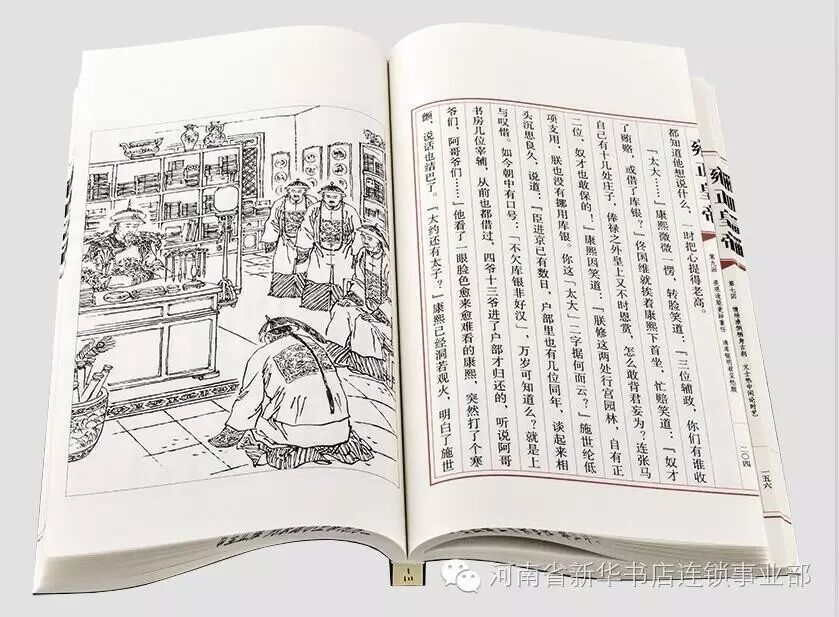 雍正皇帝
第七回 情场潦倒栖身古刹 文士热中闲论时艺
一五六
雍正皇帝
第九回
二〇四
都知道他想说什么，一时把心提得老高。
「太大……」康熙微微一愣，转脸笑道：「三位辅政，你们有谁收
了贿赂，或借了库银？」佟国维就挨着康熙下首坐，忙赔笑道：「奴才
自己有十几处庄子，俸禄之外皇上又不时恩赏，怎么敢背君妄为？连张马
二位，奴才也敢保的！」康熙因笑道：「朕修这两处行宫园林，自有正
项支用，朕也没有挪用库银。你这『太大』二字据何而云？」施世纶低
头沉思良久，说道：「臣进京已有数日，户部里也有几位同年，谈起来相
与叹惜。如今朝中有口号：『不欠库银非好汉』，万岁可知道么？就是上
书房几位宰辅，从前也都借过，四爷十三爷进了户部才归还的，听说阿哥
爷们，阿哥爷们……」他看了一眼脸色愈来愈难看的康熙，突然打了个寒
颤，说话也结巴了。「大约还有太子？」康熙已经洞若观火，明白了施世
河南省新华书店连锁事业部